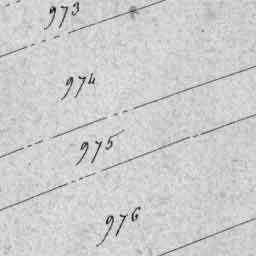 973
974
975
976